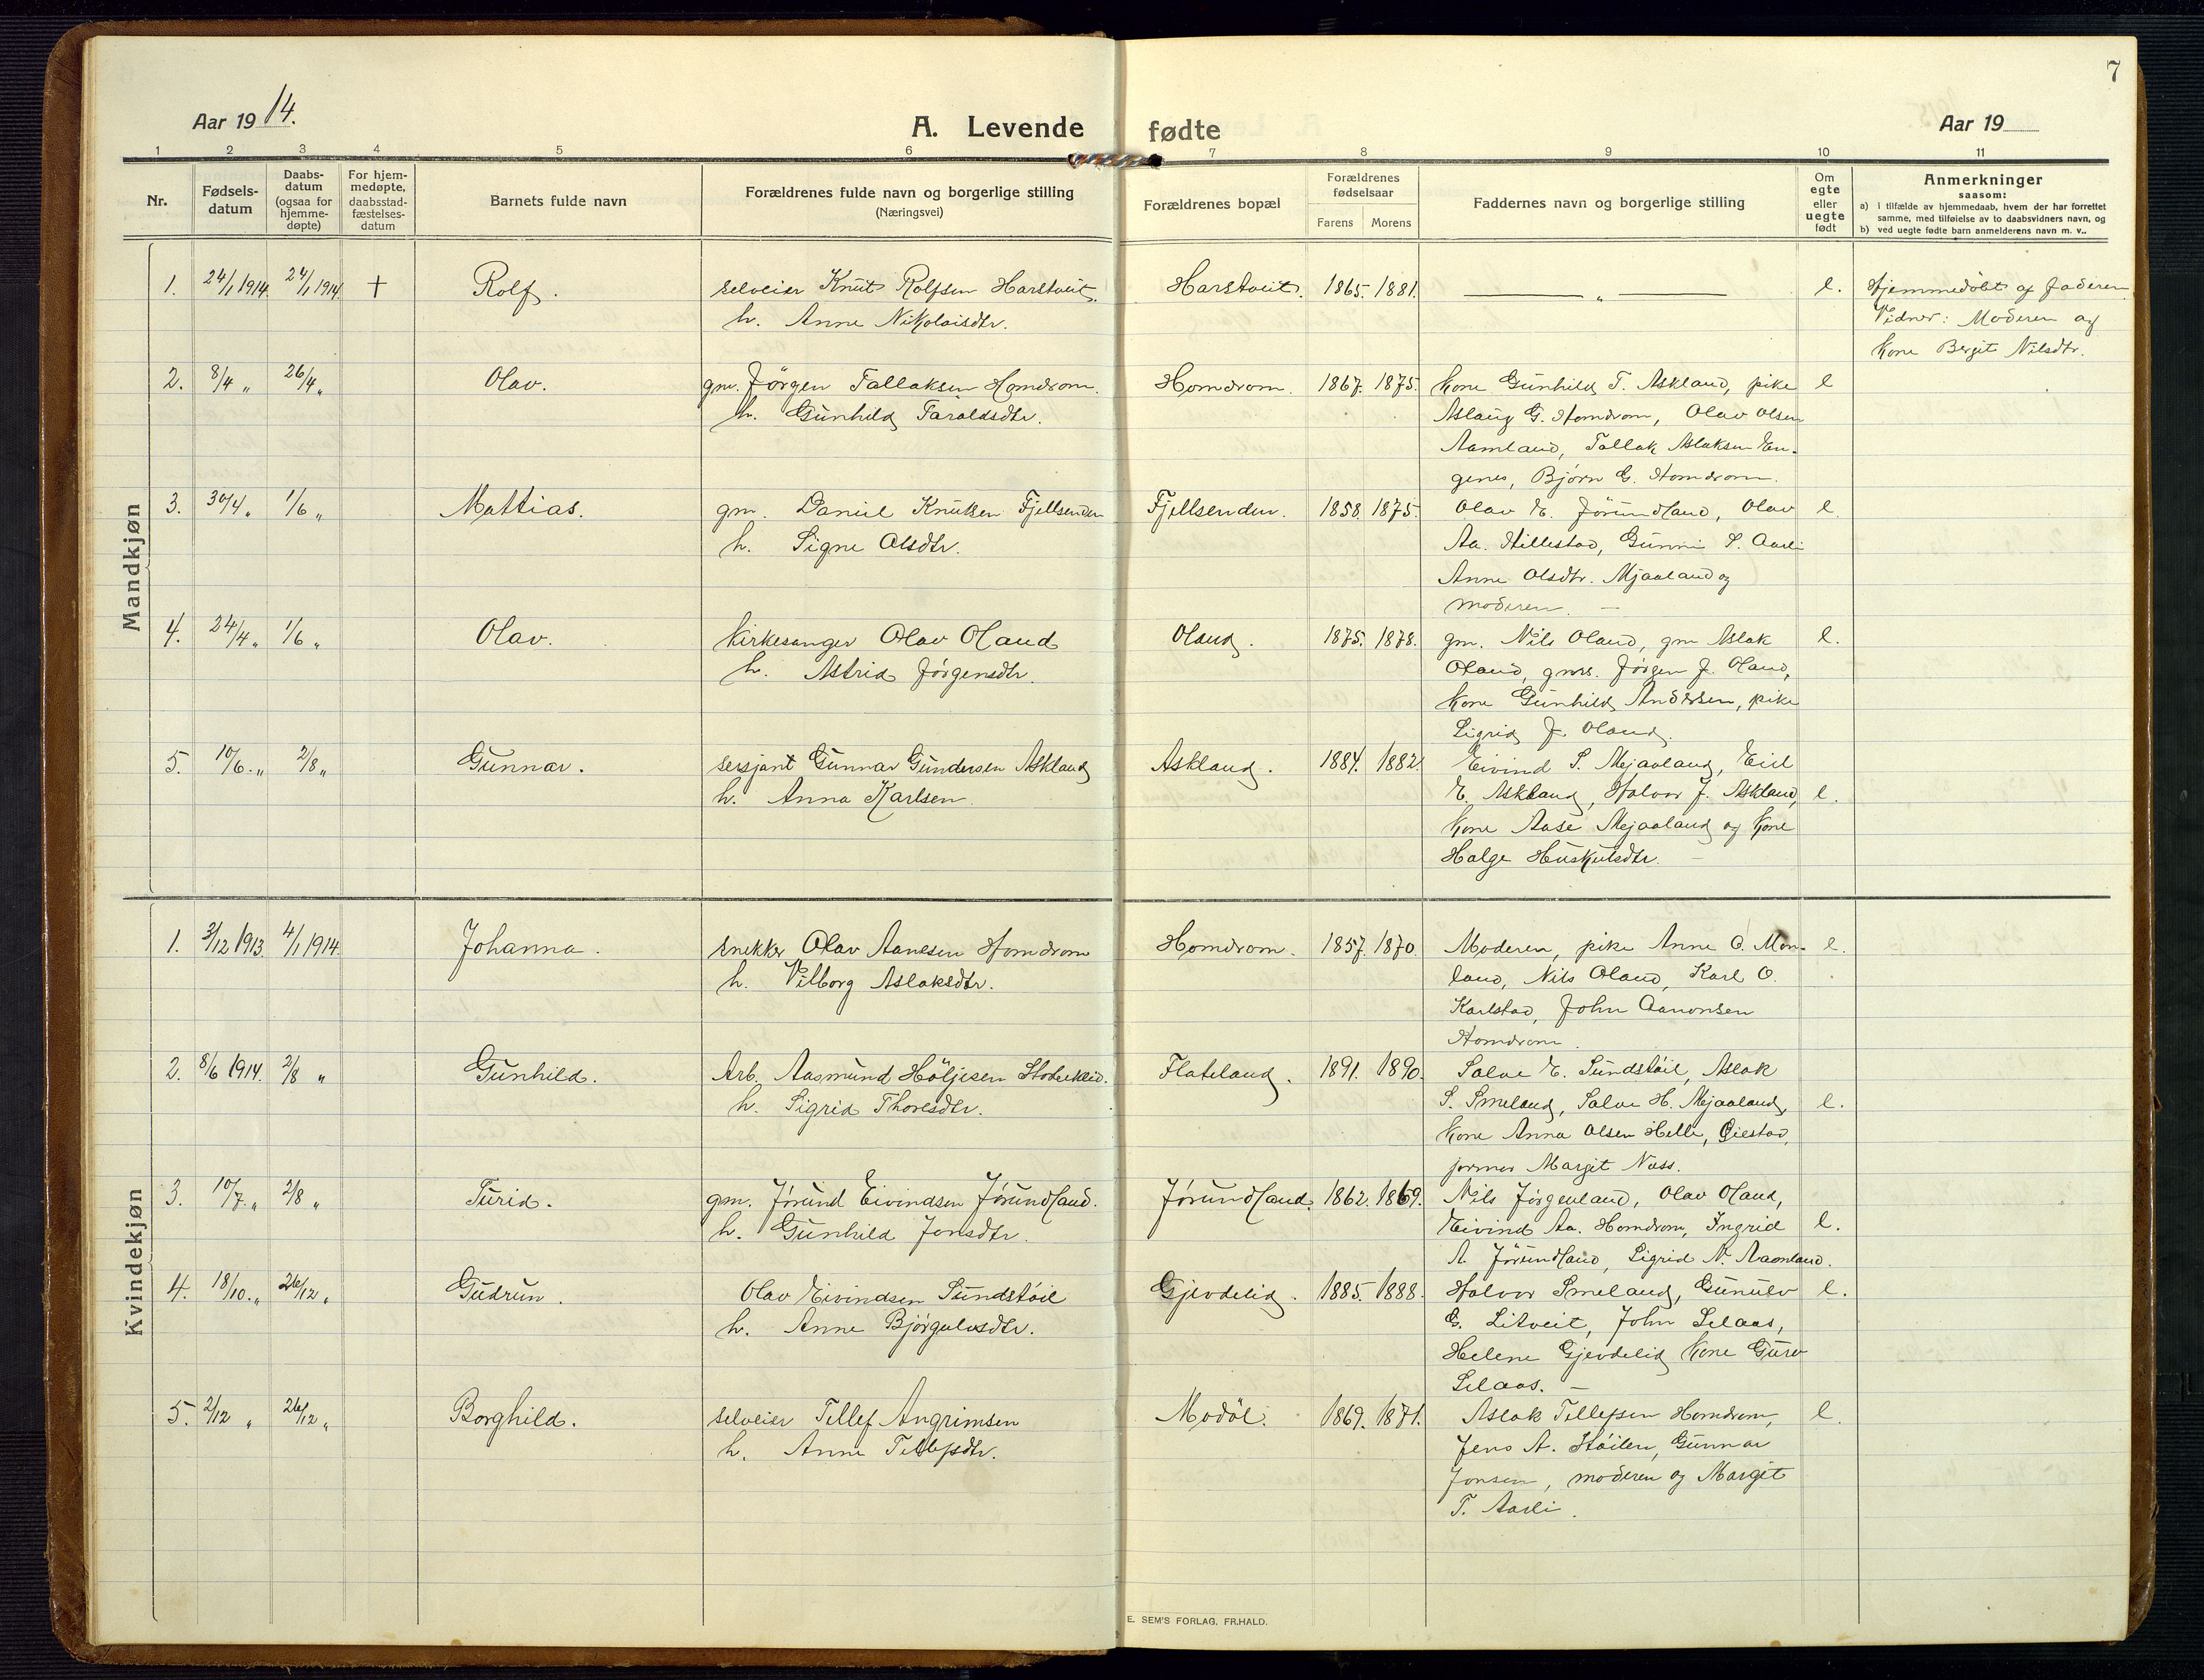 7
Aar 1914.
A. Levende fødte
Aar 19
1 2 3 4 5 6 7 8 9 10 11
Nr.
Fødsels-
datum
Daabs-
datum
(ogsaa for
hjemme-
døpte)
For hjem-
medøpte,
daabsstad-
fæstelses-
datum
Barnets fulde navn
Forældrenes fulde navn og borgerlige stilling
(Næringsvei)
Forældrenes bopæl
Forældrenes
fødselsaar
Farens Morens
Faddernes navn og borgerlige stilling
Om
egte
eller
uegte
født
Anmerkninger
saasom:
a) i tilfælde av hjemmedaab, hvem der har forrettet
samme, med tilføielse av to daabsvidners navn, og
b) ved uegte fødte barn anmelderens navn m. v..
Mandkjøn
1. 24/1 1914. 24/1 1914 + Rolf. selveier Knut Rolfsen Harstveit. Harstveit. 1865. 1881. — „ — e. Hjemmedøbt af faderen
h. Anne Nikolaisdtr. Vidner: Moderen og
Kone Bergit Nilsdtr.
2. 8/4 „ 26/4 „ Olav. gm. Jörgen Tallaksen Homdrom. Homdrom. 1867. 1875. Kone Gunhild T. Askland, pike e
h. Gunhild Taraldsdtr. Aslaug G. Homdrom, Olav Olsen
Aamland, Tallak Aslaksen En-
genes, Bjørn G. Homdrom.
3. 30/4 „ 1/6 „ Mattias. gm. Daniel Knutsen Fjellsenden Fjellsenden. 1858. 1875. Olav E. Jörundland, Olav e.
h. Signe Olsdtr. Aa. Hillestad, Gunni S. Aarli
Anne Olsdtr. Mjaaland og
moderen. —
4. 24/4 „ 1/6 „ Olav. Kirkesanger Olav Oland Oland. 1875. 1878. gm. Nils Oland, gm Aslak e.
h. Astrid Jörgensdtr. Oland, gmrs. Jörgen J. Oland,
Kone Gunhild Andersen, pike
Sigrid J. Oland.
5. 10/6. „ 2/8 „ Gunnar. sersjant Gunnar Gundersen Askland Askland. 1884. 1882. Eivind S. Mejaaland, Eiel
h. Anna Karlsen. E. Askland, Halvor J. Askland, e.
Kone Aase Mejaaland og Kone
Halge Huskulsdtr. —
Kvindekjøn
1. 3/12 1913. 4/1 1914. Johanna. snekker Olav Aanesen Homdrom Homdrom. 1857. 1870. Moderen, pike Anne O. Mon- e.
h. Vilborg Aslaksdtr. land, Nils Oland, Karl O.
Karlstad, John Aanonsen
Homdrom.
2. 8/6 1914. 2/8 „ Gunhild. Arb. Aasmund Höljesen Flateland. 1891. 1890. Salve E. Sundstöil, Aslak
h. Sigrid Thoresdtr. S. Smeland, Salve H. Mejaaland, e.
Kone Anna Olsen Helle, Öiestad,
jormor Margit Næss.
3. 10/7. „ 2/8 „ Turid. gm. Jörund Eivindsen Jörundland. Jörundland. 1862. 1869. Nils Jörgenland, Olav Oland,
h. Gunhild Jonsdtr. Eivind Aa. Homdrom, Ingrid e.
A. Jörundland, Sigrid N. Aamland.
4. 18/10. „ 26/12 „ Gudrun. Olav Eivindsen Sundstöil Gjevdelid. 1885. 1888. Halvor Smeland, Gunulv e.
h. Anne Bjørgulvsdtr. G. Litveit, John Selaas,
Helene Gjevdelid Kone Guro
Selaas. —
5. 2/12 „ 26/12 „ Borghild. selveier Tellef Angrimsen Modöl. 1869. 1871. Aslak Tellefsen Homdrom, e.
h. Anne Tellefsdtr. Jens A. Stöilen, Gunnar
Jonsen, moderen og Margit
T. Aarli.
E. SEM'S FORLAG. FR.HALD.